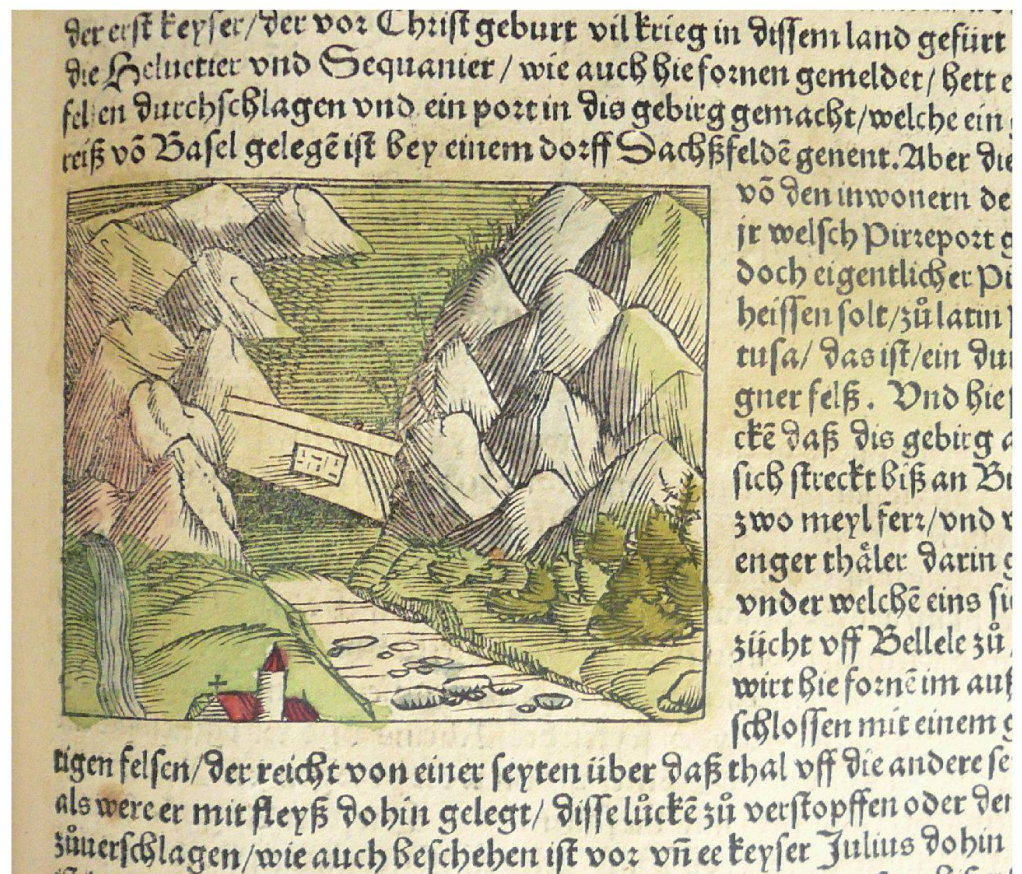 der erst keyser/der vor Christ geburt vil krieg in dissem land gefürt
die Heluetier vnd Sequanier/wie auch hie fornen gemeldet/hett
felsen durchschlagen vnd ein port in dis gebirg gemacht/welche ein
reiß võ Basel gelegẽ ist bey einem dorff Sachßfeldẽ genent. Aber die
võ den inwonern
jr welsch Pirreport
doch eigentlicher
heissen solt/zů latin
tusa/das ist/ein
gner felß. Vnd hie
ckẽ daß dis gebirg
sich streckt biß an
zwo meyl ferr/vnd
enger thåler darin
vnder welchẽ eins
zücht vff Bellele zů
wirt hie fornẽ im
schlossen mit einem
tigen felsen/der reicht von einer seyten über daß thal vff die andere
als were er mit fleyß dohin gelegt/disse lůckẽ zů verstopffen oder
zůuerschlagen/wie auch beschehen ist vor vñ ee keyser Julius dohin